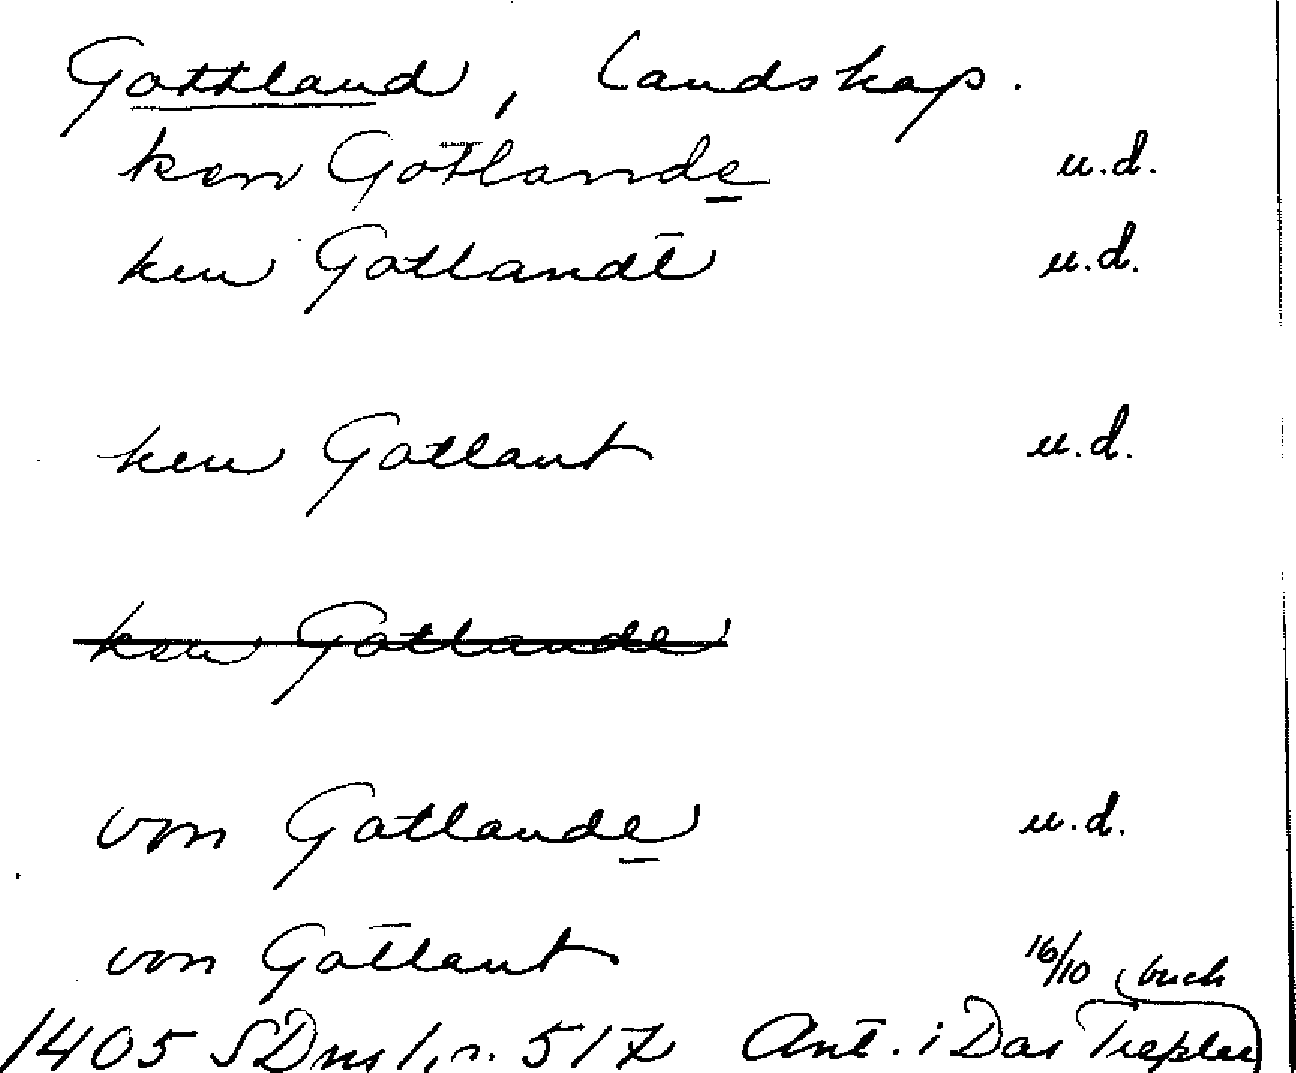 Gottland, Landskap.
ken Gotlande u.d.
ken Gotlande u.d.
ken Gotlant u.d.
ken Gotlande
von Gotlande u.d.
von Gotlant 16/10 buch
1405 SDns 1, n. 517 Ant. i Das Trepler